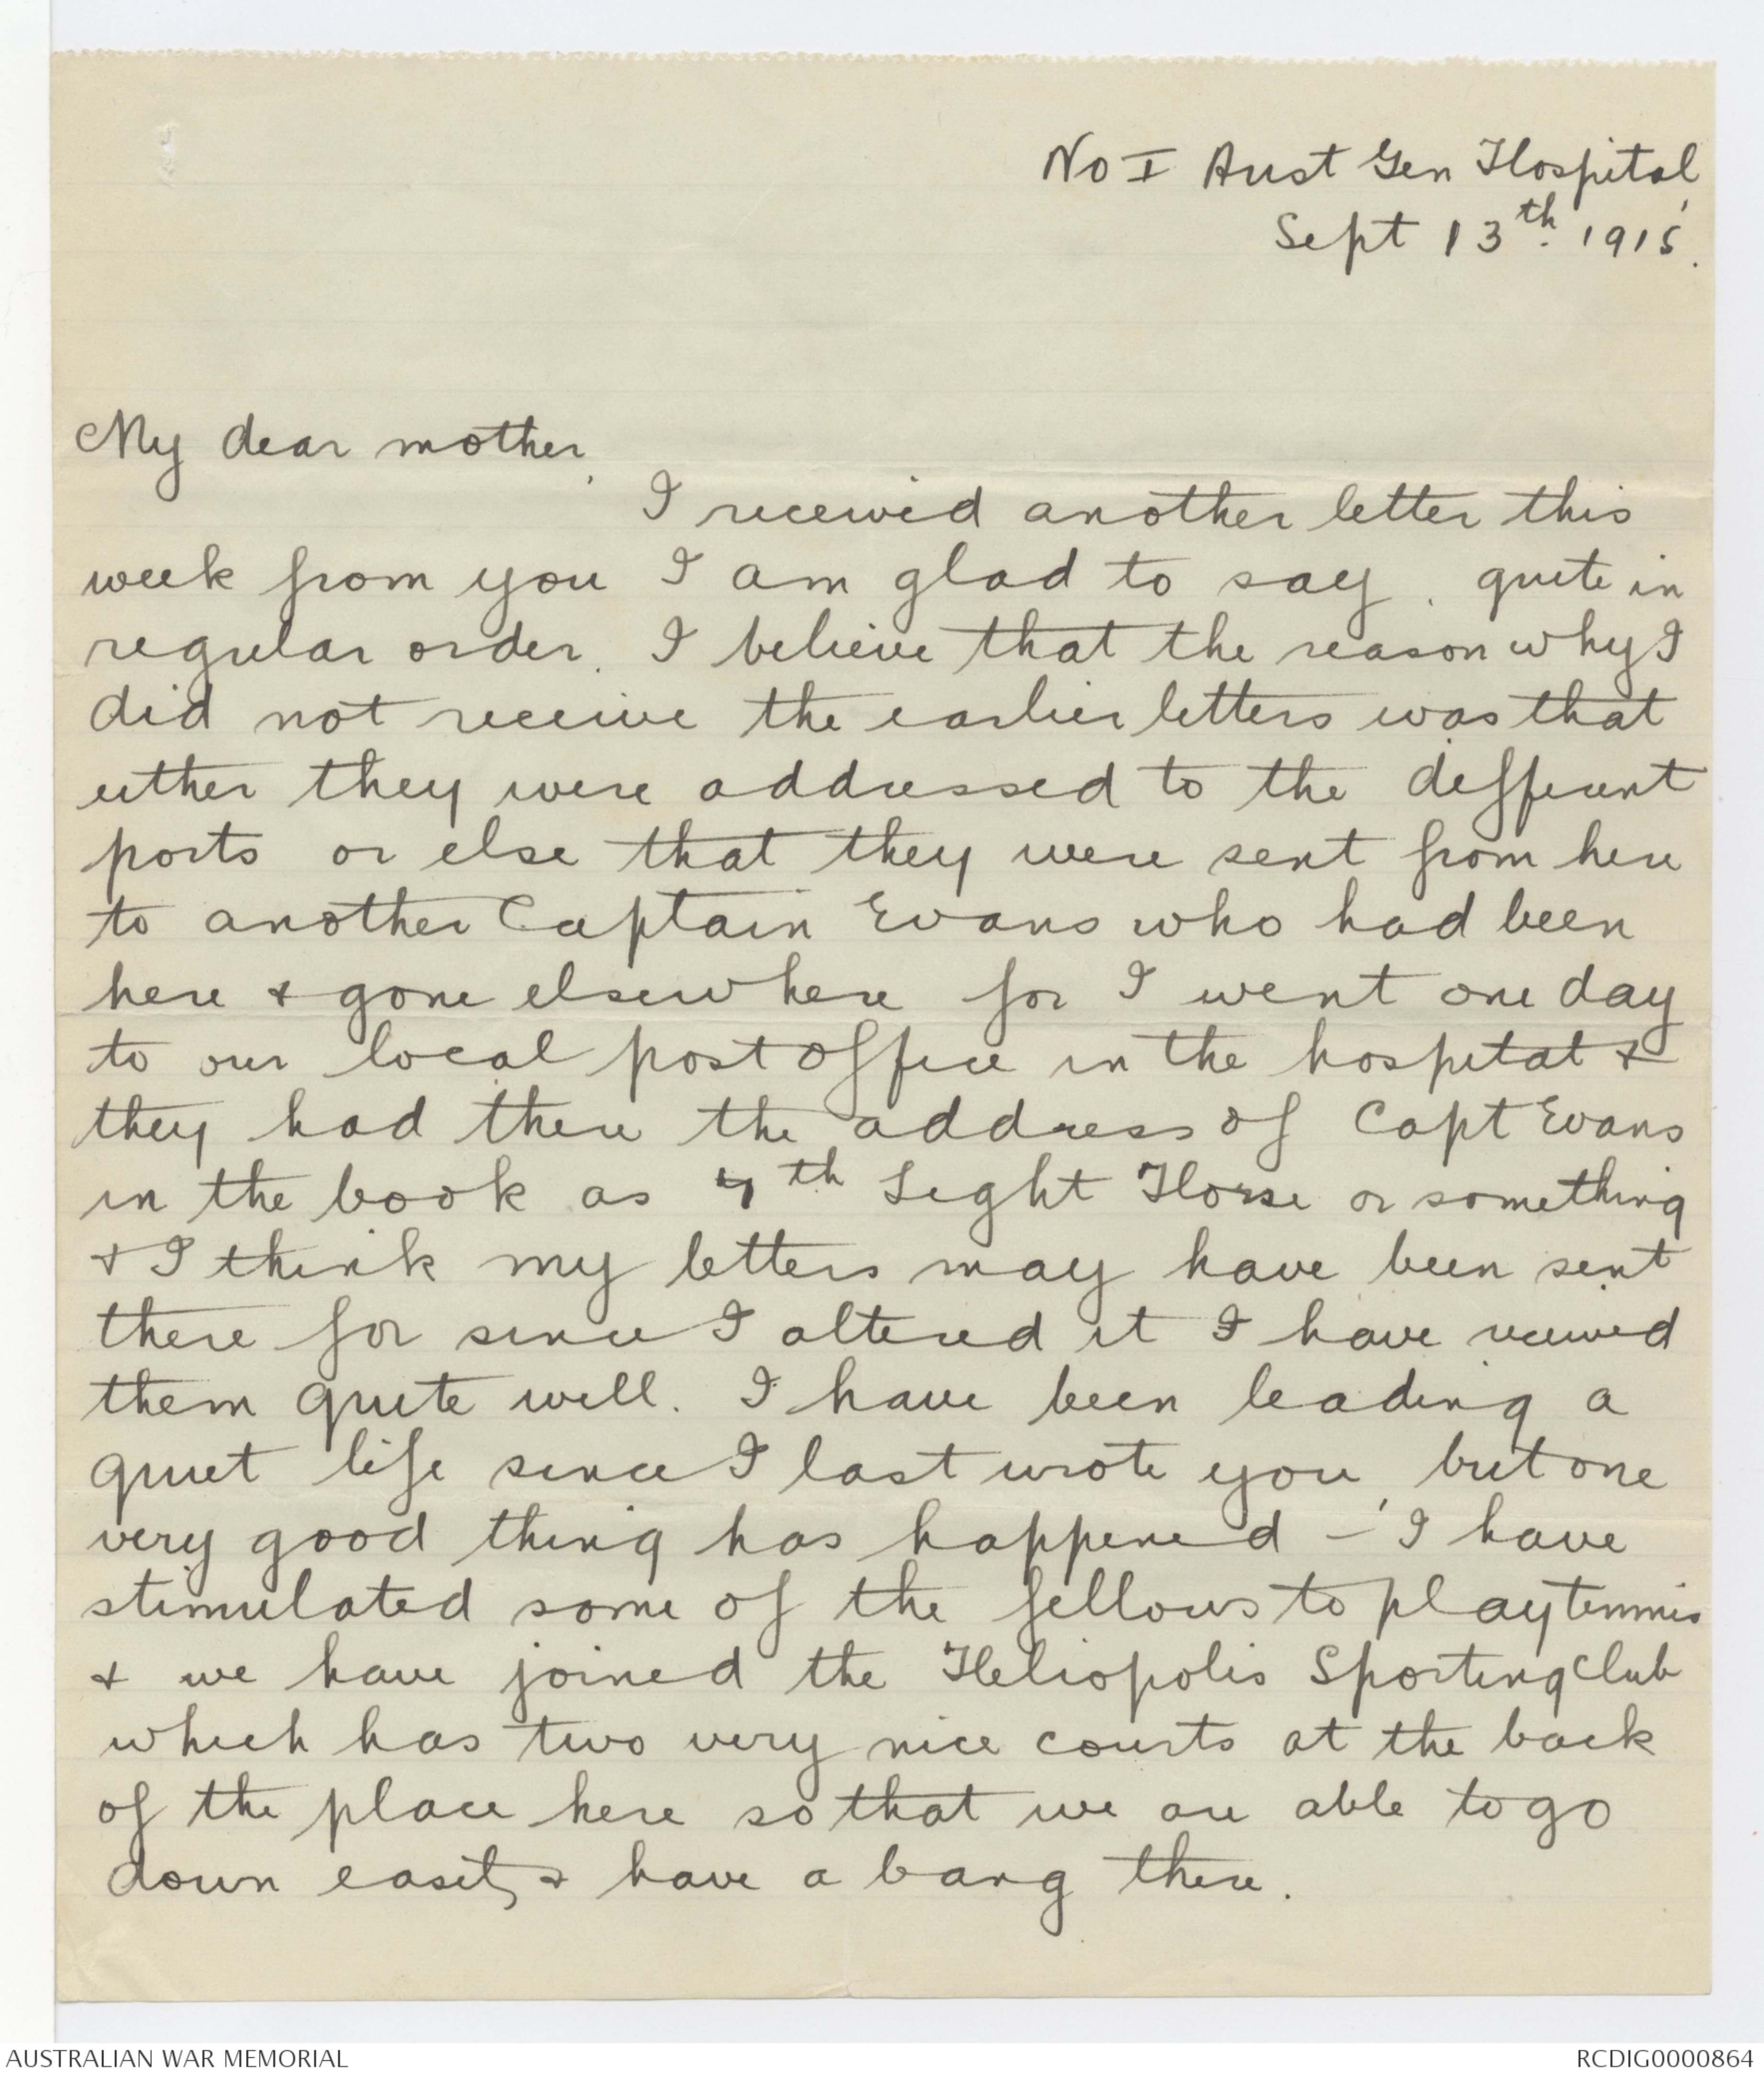 No I Aust Gen Hospital,
Sept 13th. 1915.
My dear mother,
I received another letter this
week from you I am glad to say, quite in
regular order. I believe that the reason why I
did not receive the earlier letters was that
either they were addressed to the different
ports or else that they were sent from here
to another Captain Evans who had been
here & gone elsewhere for I went one day
to our local post office in the hospital &
they had there the address of Capt Evans
in the book as 4th Light Horse or something
& I think my letters may have been sent
there for since I altered it I have received
them quite well. I have been leading a
quiet life since I last wrote you, but one
very good thing has happened - I have
stimulated some of the fellows to play tennis
& we have joined the Heliopolis Sporting Club
which has two very nice courts at the back
of the place here so that we are able to go
down easily & have a bang there.
AUSTRALIAN WAR MEMORIAL
RCDIG0000864